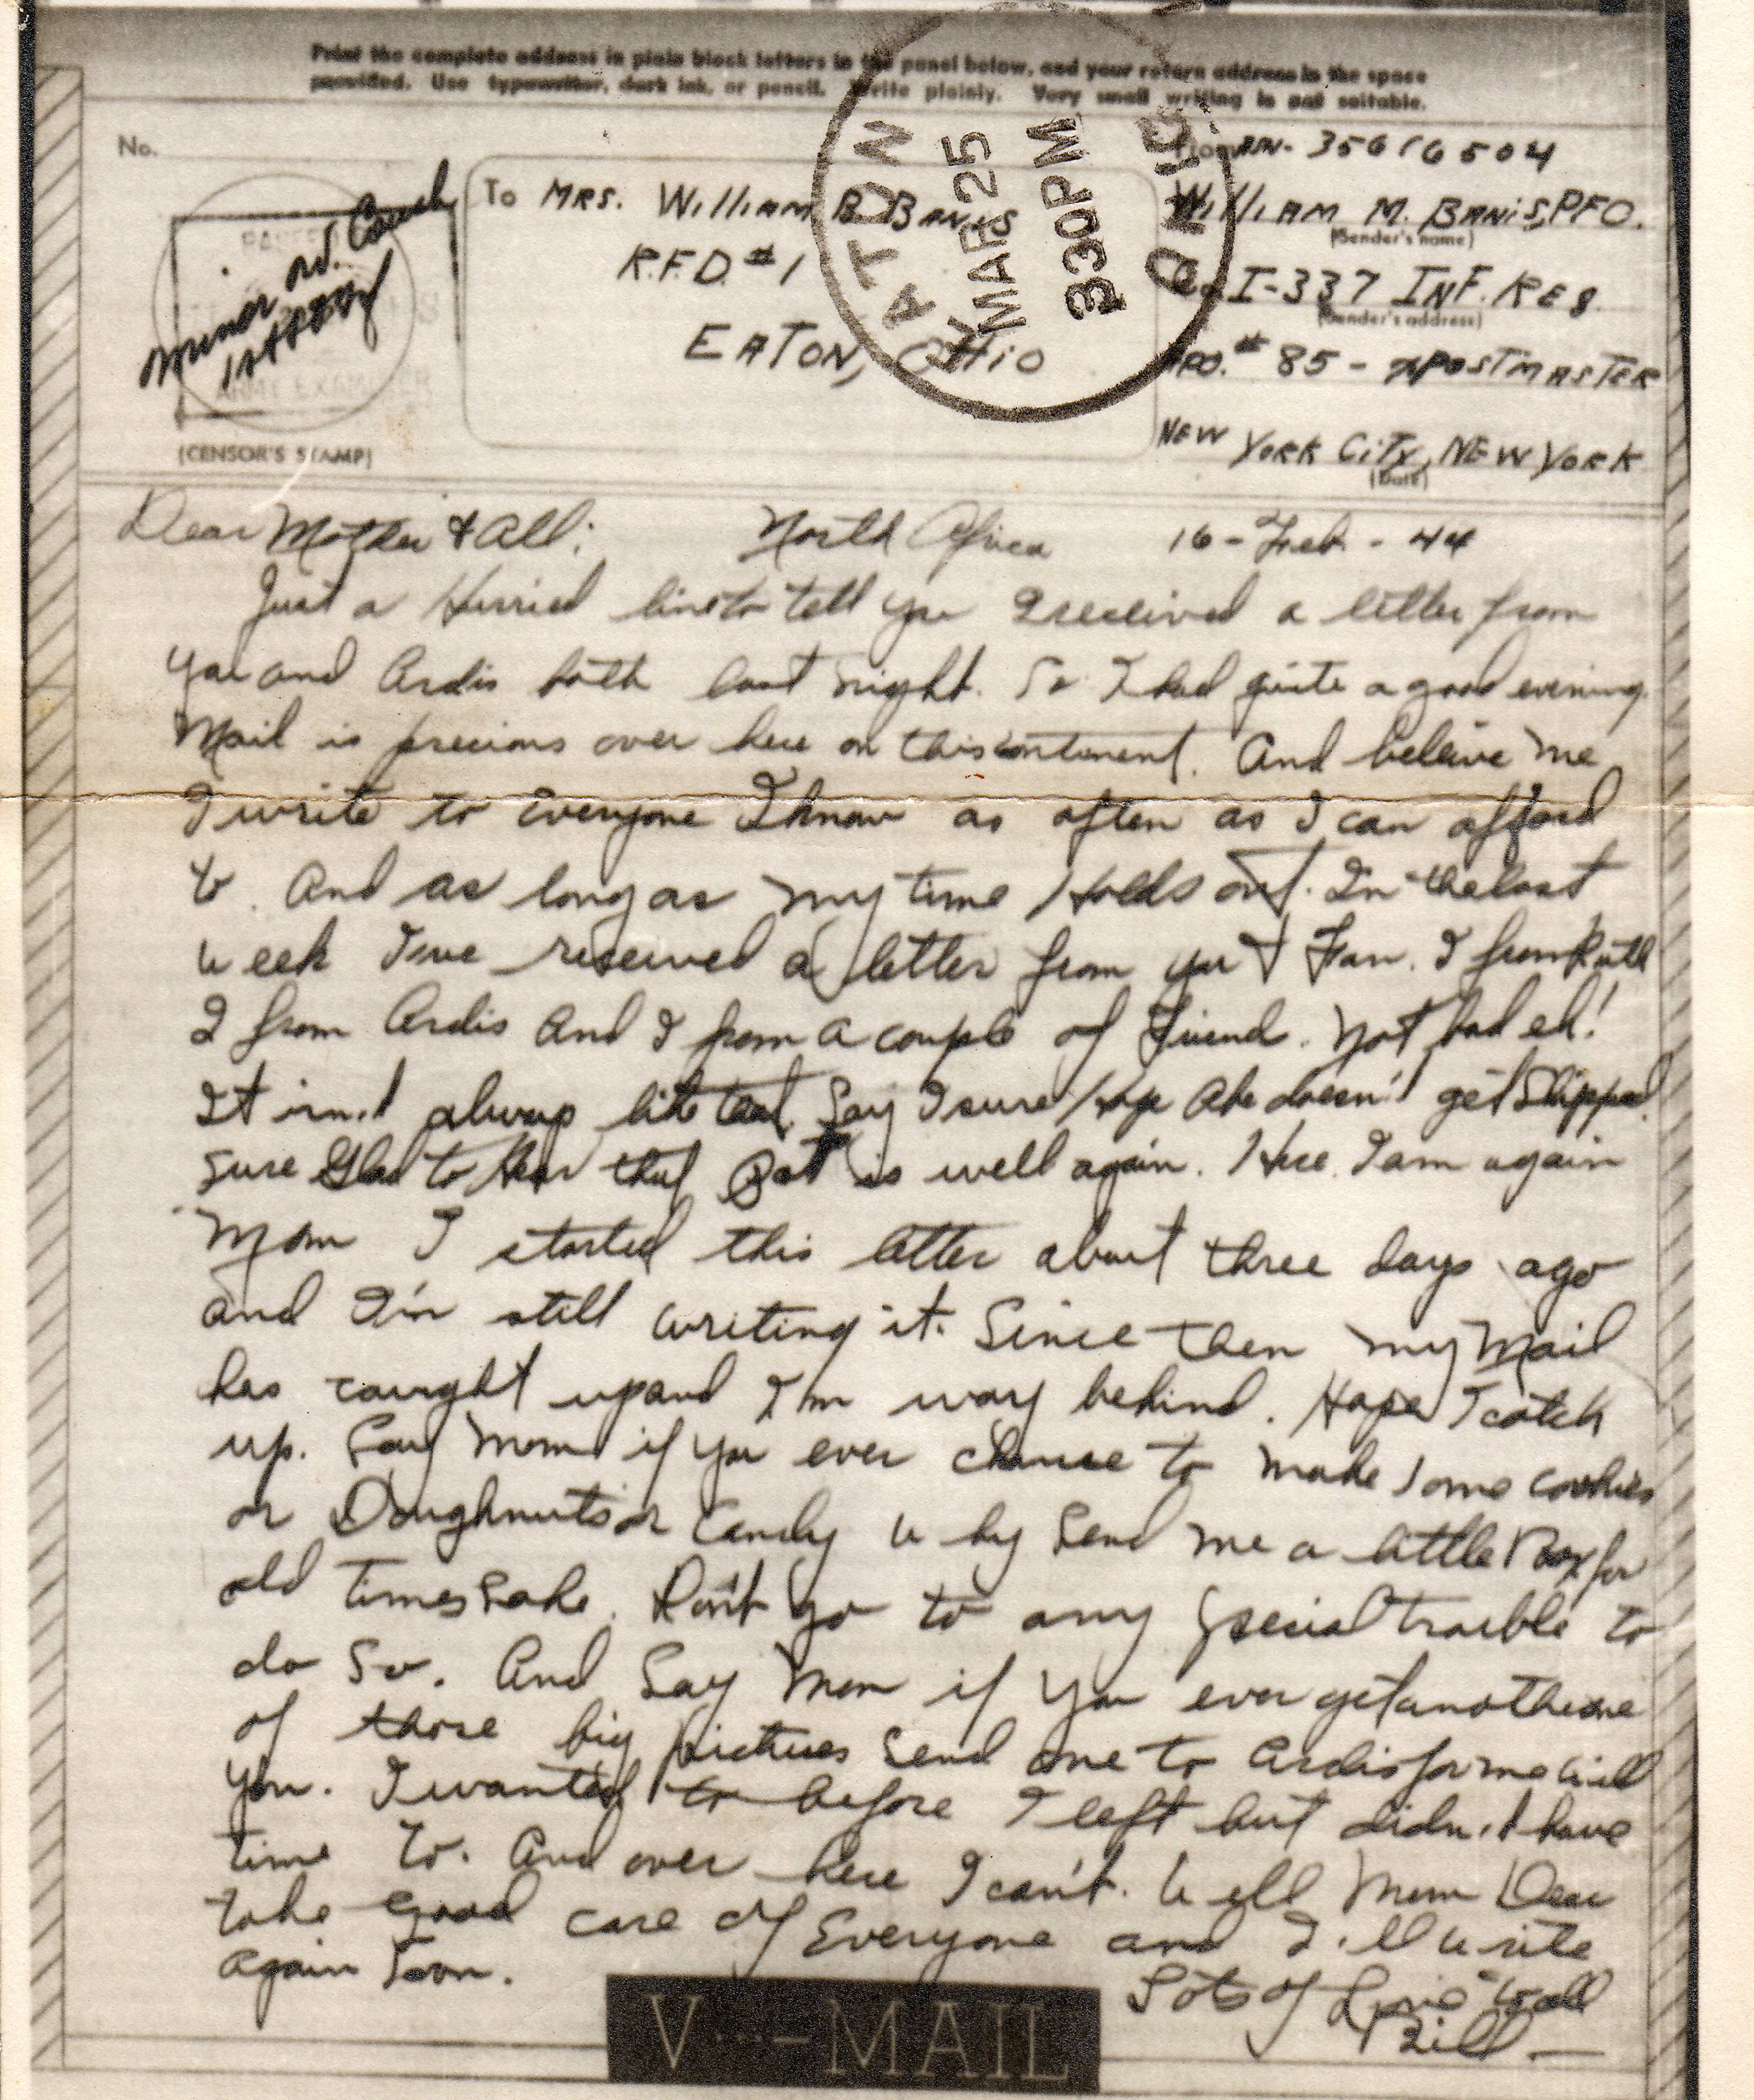 Print the complete address in plain block letters in the panel below, and your return address in the space
provided. Use typewriter, dark ink, or pencil. Write plainly. Very small writing is not suitable.
No.
(CENSOR'S STAMP)
To MRS. William B. BANIS
R.F.D. #1
EATON, OHIO
EATON
MAR 25
330PM
OHIO
From ASN- 35616504
William M. BANIS, PFC.
(Sender's name)
Co. I-337 INF. REG.
(Sender's address)
APO. # 85 - % POSTMASTER
NEW YORK CITY, NEW YORK
(Date)
Dear Mother & All: North Africa 16-Feb-44
Just a Hurried line to tell you I received a letter from
you and Ardis both last night. So I had quite a good evening.
Mail is precious over here on this continent. And beleive me
I write to Everyone I know as often as I can afford
to. And as long as my time Holds out. In the last
week I've received a letter from you & Fam. 1 from Ruth
2 from Ardis and 1 from a couple of Friend. Not bad eh!
It isn't always like that. Say I sure Hope Abe doesn't get Shipped.
Sure Glad to Hear that Pat is well again. Here I am again
Mom I started this letter about three days ago
and I'm still writing it. Since then my Mail
has caught up and I'm way behind. Hope I catch
up. Say Mom if you ever chance to make some cookies
or Doughnuts or Candy why Send me a little Box for
old times sake. Don't go to any special trouble to
do so. And Say Mom if you ever get another one
of those big pictures send one to Ardis for me will
you. I wanted to before I left but didn't have
time to. And over here I can't. Well Mom Dear
take good care of Everyone and I'll write
again soon.
Lots of Love to all
Bill
V···-MAIL